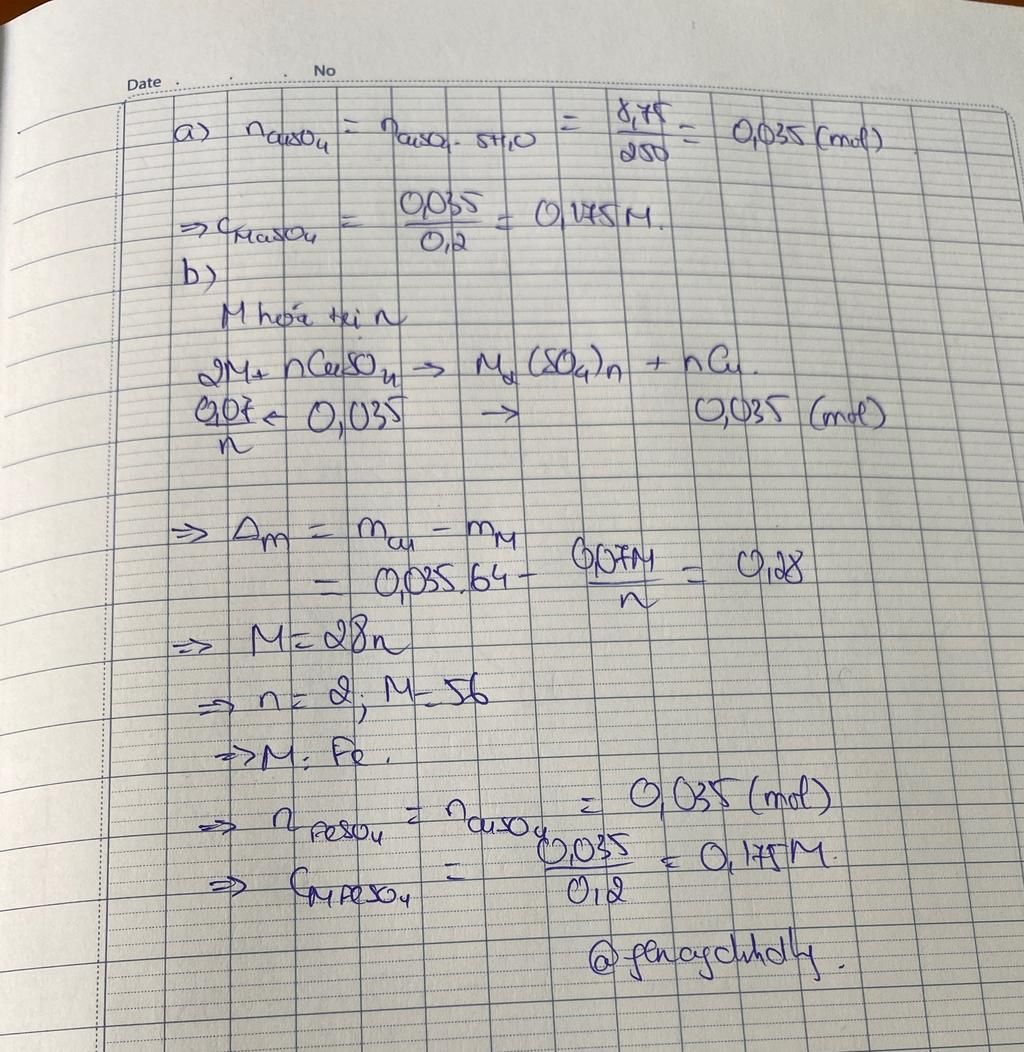 Date No
a) nCuSO4 = nCuSO4.5H2O = 8,75/250 = 0,035 (mol)
⇒ CM CuSO4 = 0,035/0,2 = 0,175M.
b)
M hoá trị n
2M + nCuSO4 → M2(SO4)n + nCu.
0,07/n ← 0,035 → 0,035 (mol)
⇒ Δm = mCu – mM
= 0,035.64 – 0,07M/n = 0,28
⇒ M = 28n
⇒ n = 2; M = 56
⇒ M: Fe.
⇒ nFeSO4 = nCuSO4 = 0,035 (mol)
⇒ CM FeSO4 = 0,035/0,2 = 0,175M.